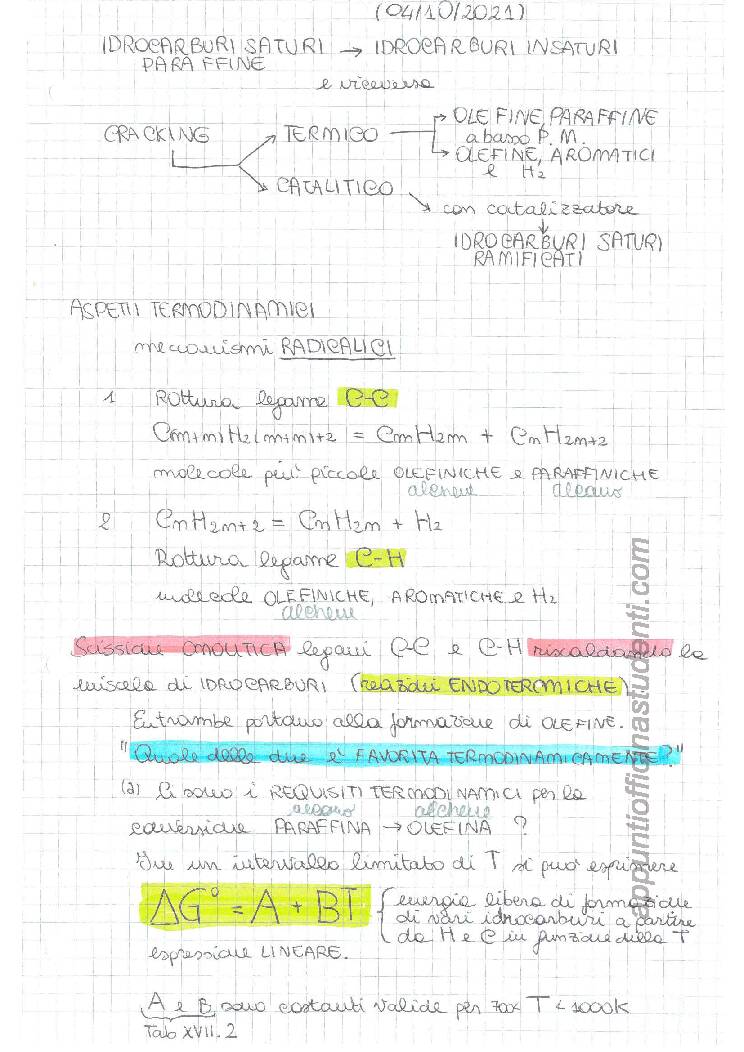 (04/10/2021)
IDROCARBURI SATURI → IDROCARBURI INSATURI
PARAFFINE
e viceversa
CRACKING
TERMICO
OLEFINE, PARAFFINE
a basso P. M.
OLEFINE, AROMATICI
e H2
CATALITICO
con catalizzatore
IDROCARBURI SATURI
RAMIFICATI
ASPETTI TERMODINAMICI
meccanismi RADICALICI
1 Rottura legame C-C
C(m+n)H2(m+n)+2 = CmH2m + CnH2n+2
molecole più piccole OLEFINICHE e PARAFFINICHE
alchene alcano
2 CnH2n+2 = CnH2n + H2
Rottura legame C-H
molecole OLEFINICHE, AROMATICHE e H2
alchene
Scissione OMOLITICA legami C-C e C-H riscaldando la
miscela di IDROCARBURI (reazioni ENDOTERMICHE)
Entrambe portano alla formazione di OLEFINE.
"Quale delle due è FAVORITA TERMODINAMICAMENTE?"
(a) Ci sono i REQUISITI TERMODINAMICI per la
alcano alchene
conversione PARAFFINA → OLEFINA ?
In un intervallo limitato di T si può esprimere
ΔG° = A + BT
energia libera di formazione
di vari idrocarburi a partire
da H e C in funzione della T
espressione LINEARE.
A e B sono costanti valide per T < 1000K
Tab XVII.2
appuntiofficinastudenti.com